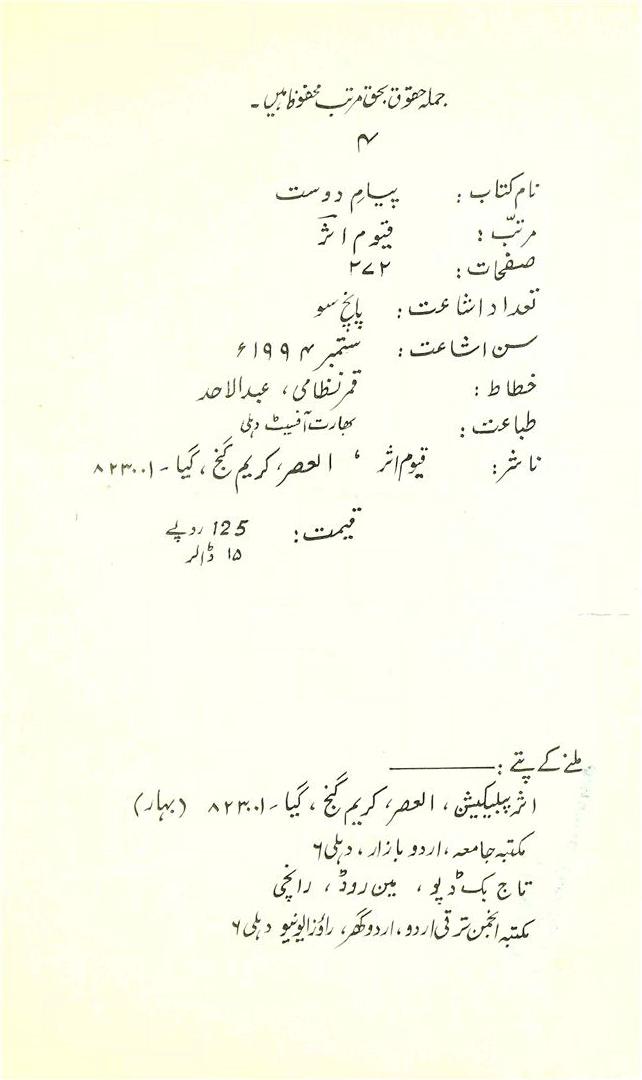 جملہ حقوق بحق مرتب محفوظ ہیں۔
۴
نام کتاب: پیامِ دوست
مرتبّ: قیوم اثرؔ
صفحات: ۲۷۲
تعداد اشاعت: پانچ سو
سن اشاعت: ستمبر ۱۹۹۴ء
خطاط: قمر نظامی، عبدالاحد
طباعت: بھارت آفسیٹ دہلی
ناشر: قیوم اثر، العصر، کریم گنج، گیا۔ ۸۲۳۰۰۱
قیمت: 125 روپے
۱۵ ڈالر
ملنے کے پتے:
اثر پبلیکیشن، العصر، کریم گنج، گیا۔ ۸۲۳۰۰۱ (بہار)
مکتبہ جامعہ، اردو بازار، دہلی ۶
تاج بک ڈپو، مین روڈ، رانچی
مکتبہ انجمن ترقی اردو، اردو گھر، راؤز ایونیو دہلی ۶